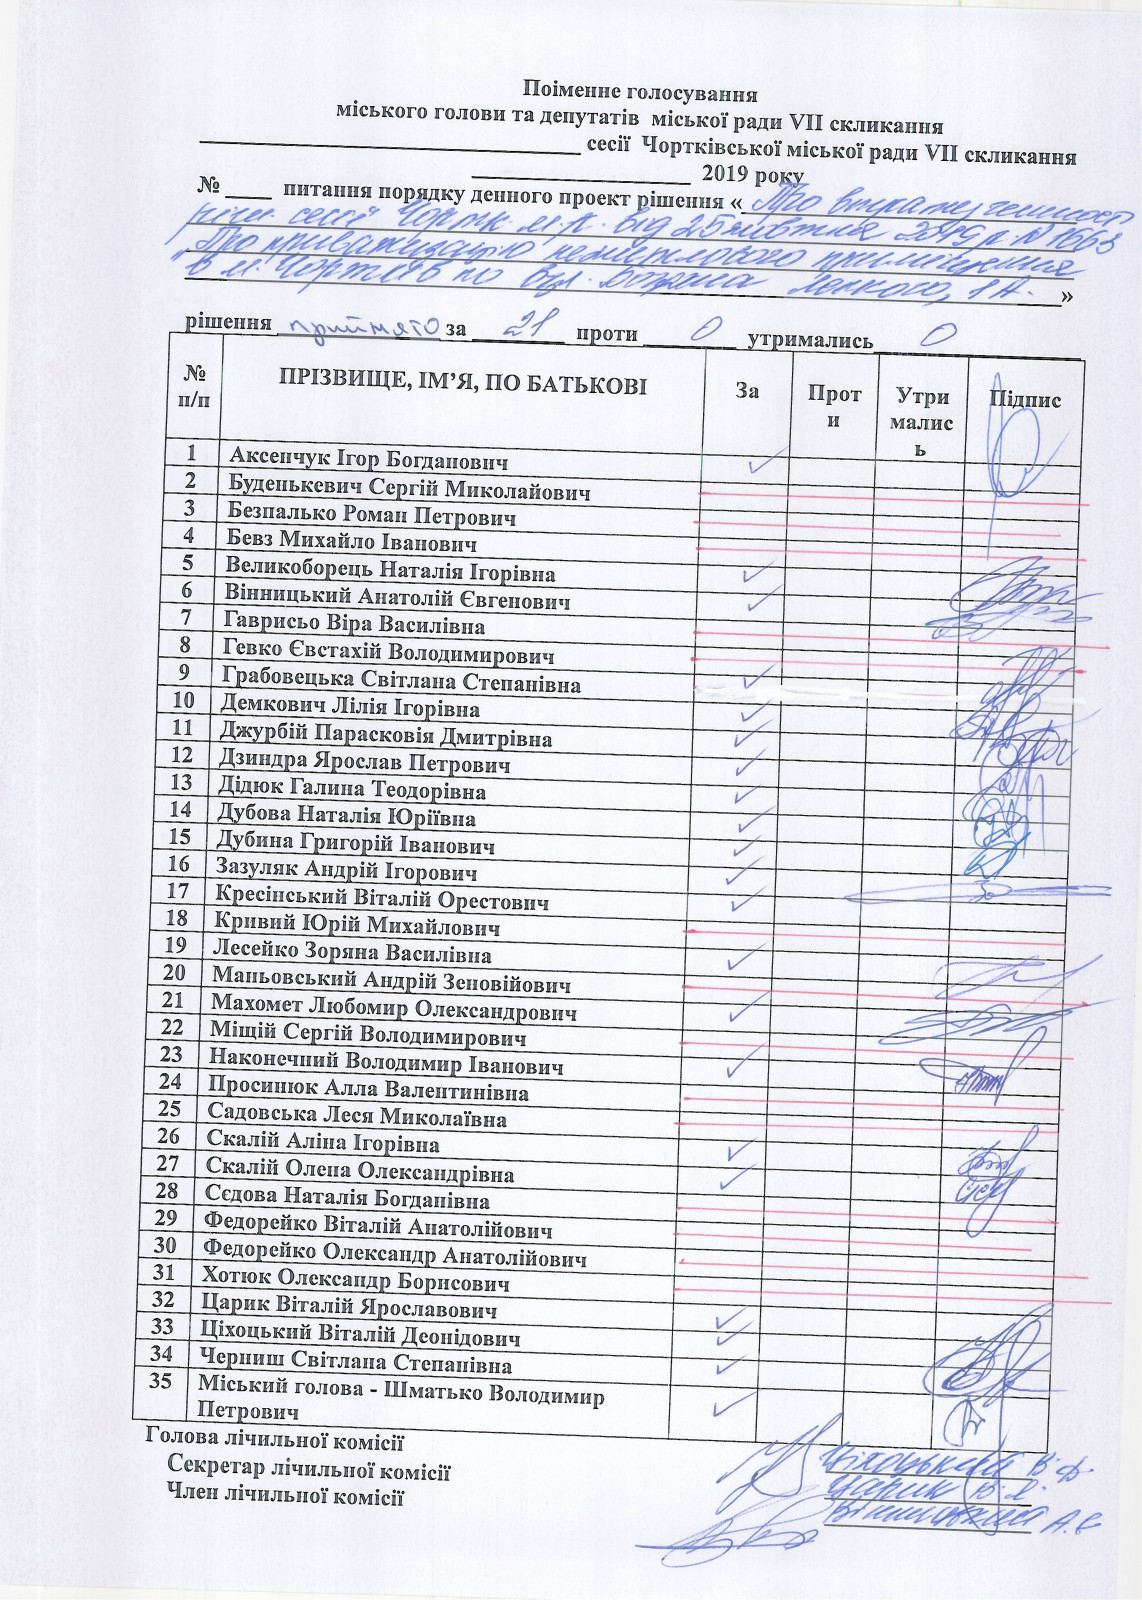 Поіменне голосування
міського голови та депутатів міської ради VII скликання
_______________ сесії Чортківської міської ради VII скликання
_______________ 2019 року
№ ____ питання порядку денного проект рішення « Про втрату чинності
ріш. сесії Чортк. м.р. від 25 жовтня 2019 р. № 1663
"Про приватизацію нежитлового приміщення
в м. Чортків по вул. Богдана Лепкого, 1А. »
рішення прийнято за 21 проти 0 утримались 0
№ п/п ПРІЗВИЩЕ, ІМ’Я, ПО БАТЬКОВІ За Проти Утримались Підпис
1 Аксенчук Ігор Богданович ✓
2 Буденькевич Сергій Миколайович
3 Безпалько Роман Петрович
4 Бевз Михайло Іванович
5 Великоборець Наталія Ігорівна ✓
6 Вінницький Анатолій Євгенович ✓
7 Гаврисьо Віра Василівна
8 Гевко Євстахій Володимирович
9 Грабовецька Світлана Степанівна ✓
10 Демкович Лілія Ігорівна ✓
11 Джурбій Парасковія Дмитрівна ✓
12 Дзиндра Ярослав Петрович ✓
13 Дідюк Галина Теодорівна ✓
14 Дубова Наталія Юріївна ✓
15 Дубина Григорій Іванович ✓
16 Зазуляк Андрій Ігорович ✓
17 Кресінський Віталій Орестович ✓
18 Кривий Юрій Михайлович
19 Лесейко Зоряна Василівна ✓
20 Маньовський Андрій Зеновійович
21 Махомет Любомир Олександрович ✓
22 Міщій Сергій Володимирович
23 Наконечний Володимир Іванович ✓
24 Просинюк Алла Валентинівна
25 Садовська Леся Миколаївна
26 Скалій Аліна Ігорівна ✓
27 Скалій Олена Олександрівна ✓
28 Сєдова Наталія Богданівна
29 Федорейко Віталій Анатолійович
30 Федорейко Олександр Анатолійович
31 Хотюк Олександр Борисович
32 Царик Віталій Ярославович ✓
33 Ціхоцький Віталій Деонідович ✓
34 Черниш Світлана Степанівна ✓
35 Міський голова - Шматько Володимир ✓
Петрович
Голова лічильної комісії Ціхоцький В. Д.
Секретар лічильної комісії Царик В. Я.
Член лічильної комісії Вінницький А. Є